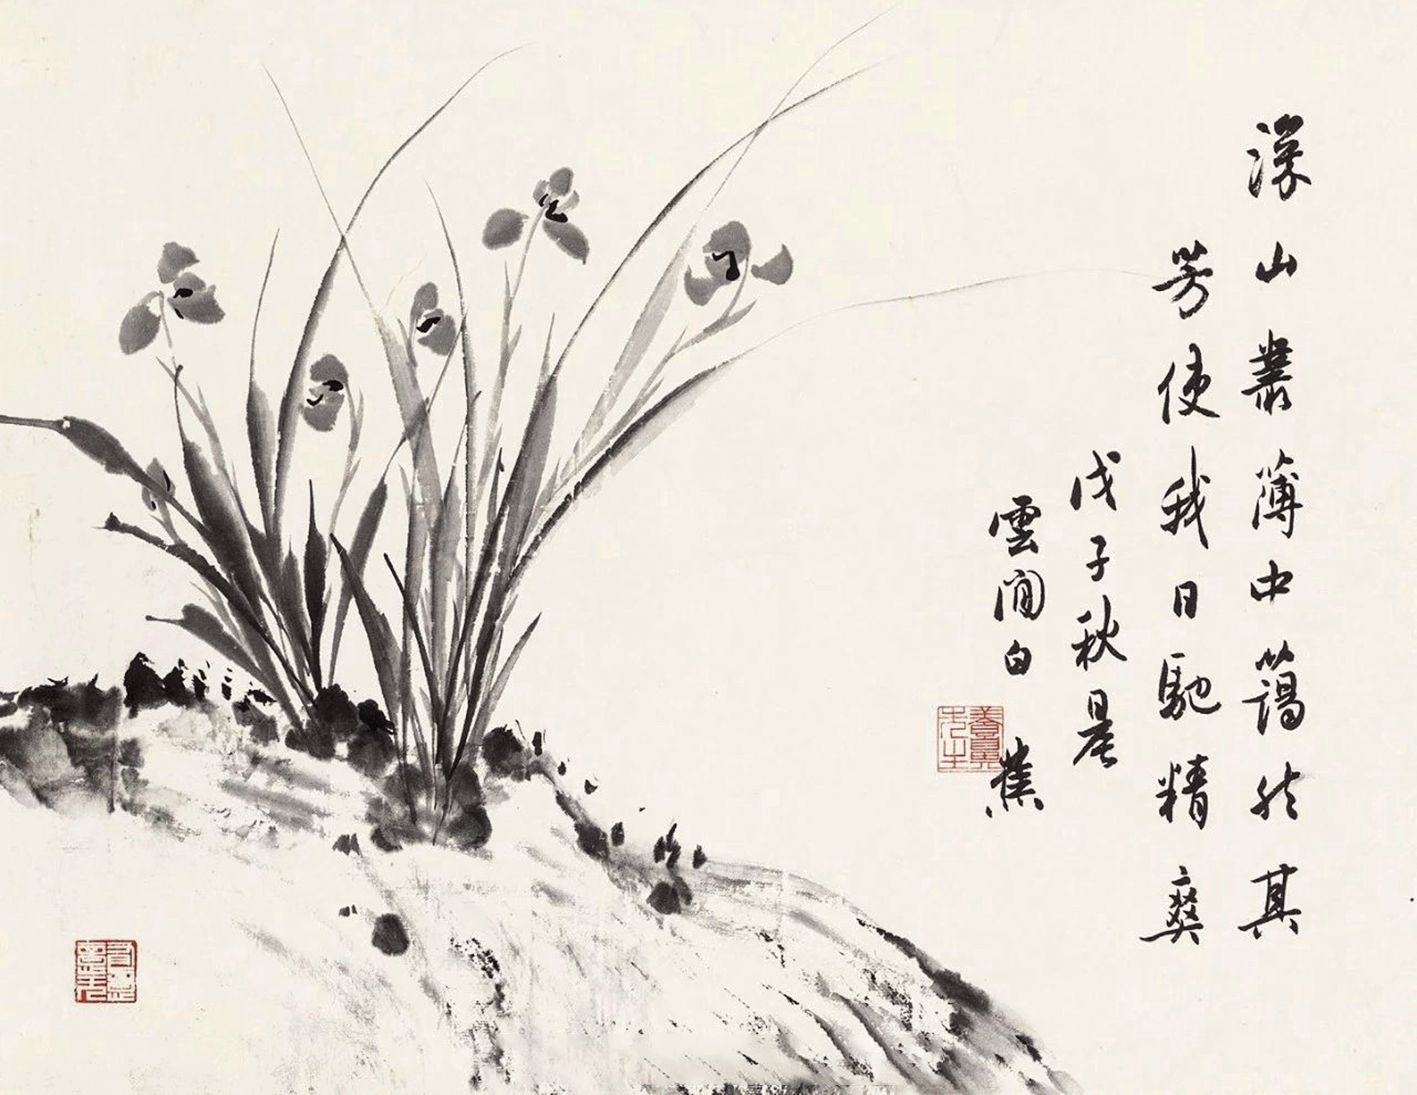 深山叢薄中藹然其
芳使我日馳精爽
戊子秋晨
雲間白蕉